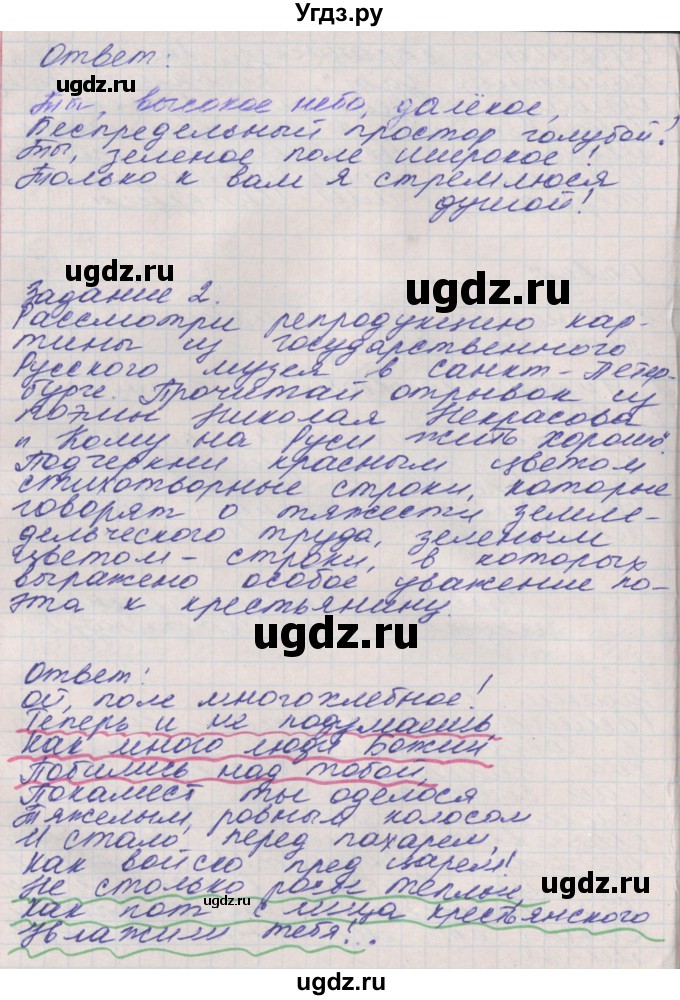 Угдз.ру
Ответ:
ugdz.ru ugdz.ru
Ты, высокое небо, далёкое,
Беспредельный простор голубой!
Ты, зеленое поле широкое!
Только к вам я стремлюся
душой!
ugdz.ru ugdz.ru
Задание 2.
Рассмотри репродукцию кар-
тины из государственного
Русского музея в Санкт-Петер-
бурге. Прочитай отрывок из
поэмы Николая Некрасова
"Кому на Руси жить хорошо".
Подчеркни красным цветом
стихотворные строки, которые
говорят о тяжести земле-
дельческого труда, зеленым
цветом - строки, в которых
выражено особое уважение по-
эта к крестьянину.
ugdz.ru
Ответ:
ой, поле многохлебное!
Теперь и не подумаешь
Как много люди Божии
Побились над тобой,
Покамест ты оделося
Тяжелым, ровным колосом
И стало перед пахарем,
Как войско пред царем!
Не столько росы теплые,
ugdz.ru ugdz.ru
Как пот с лица крестьянского
Увлажили тебя!..
ugdz.ru